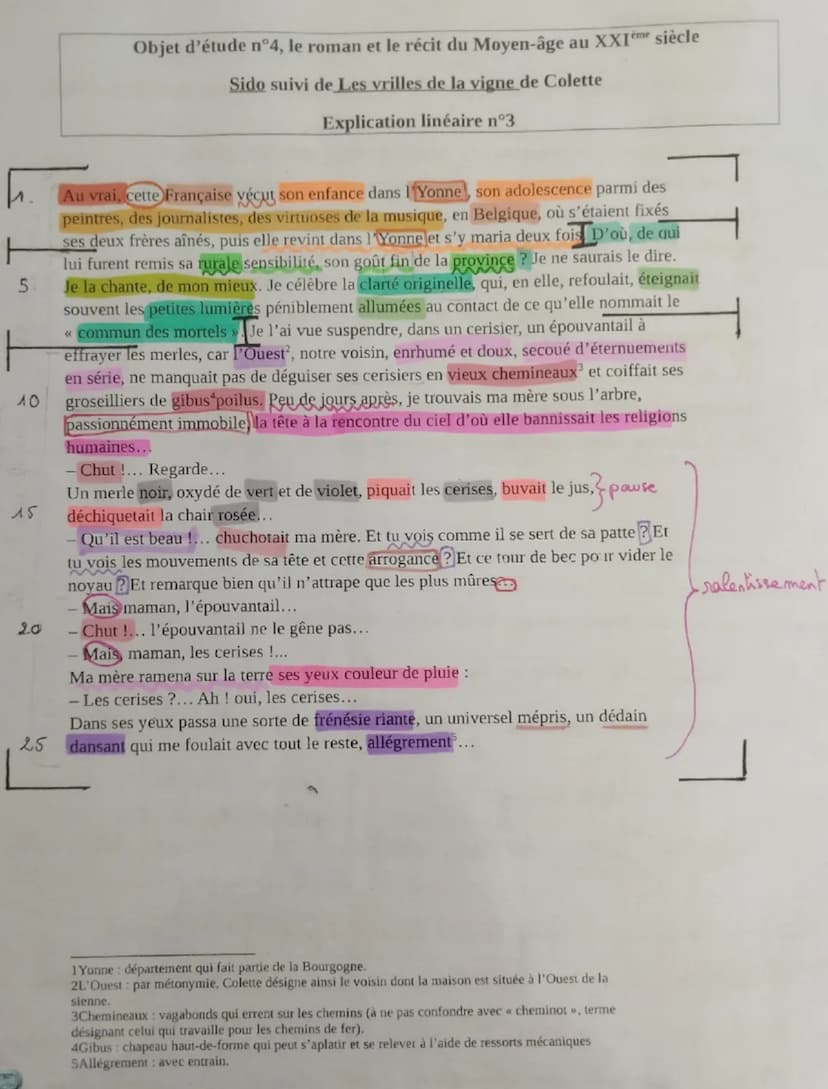 Objet d'étude n°4, le roman et le récit du Moyen-âge au XXIème siècle
Sido suivi de Les vrilles de la vigne de Colette
Explication linéaire n°3
1. Au vrai, cette Française vécut son enfance dans l'Yonne¹, son adolescence parmi des
peintres, des journalistes, des virtuoses de la musique, en Belgique, où s'étaient fixés
ses deux frères aînés, puis elle revint dans l'Yonne et s'y maria deux fois. D'où, de qui
lui furent remis sa rurale sensibilité, son goût fin de la province ? Je ne saurais le dire.
5 Je la chante, de mon mieux. Je célèbre la clarté originelle, qui, en elle, refoulait, éteignait
souvent les petites lumières péniblement allumées au contact de ce qu'elle nommait le
« commun des mortels ». Je l'ai vue suspendre, dans un cerisier, un épouvantail à
effrayer les merles, car l'Ouest², notre voisin, enrhumé et doux, secoué d'éternuements
en série, ne manquait pas de déguiser ses cerisiers en vieux chemineaux³ et coiffait ses
10 groseilliers de gibus⁴ poilus. Peu de jours après, je trouvais ma mère sous l'arbre,
passionnément immobile, la tête à la rencontre du ciel d'où elle bannissait les religions
humaines...
– Chut !... Regarde...
Un merle noir, oxydé de vert et de violet, piquait les cerises, buvait le jus, } pause
15 déchiquetait la chair rosée...
– Qu'il est beau !... chuchotait ma mère. Et tu vois comme il se sert de sa patte ? Et
tu vois les mouvements de sa tête et cette arrogance ? Et ce tour de bec pour vider le
noyau ? Et remarque bien qu'il n'attrape que les plus mûres...
ralentissement
– Mais maman, l'épouvantail...
20 – Chut !... l'épouvantail ne le gêne pas...
– Mais, maman, les cerises !...
Ma mère ramena sur la terre ses yeux couleur de pluie :
– Les cerises ?... Ah ! oui, les cerises...
Dans ses yeux passa une sorte de frénésie riante, un universel mépris, un dédain
25 dansant qui me foulait avec tout le reste, allégrement⁵...
1Yonne : département qui fait partie de la Bourgogne.
2L'Ouest : par métonymie, Colette désigne ainsi le voisin dont la maison est située à l'Ouest de la
sienne.
3Chemineaux : vagabonds qui errent sur les chemins (à ne pas confondre avec « cheminot », terme
désignant celui qui travaille pour les chemins de fer).
4Gibus : chapeau haut-de-forme qui peut s'aplatir et se relever à l'aide de ressorts mécaniques
5Allégrement : avec entrain.